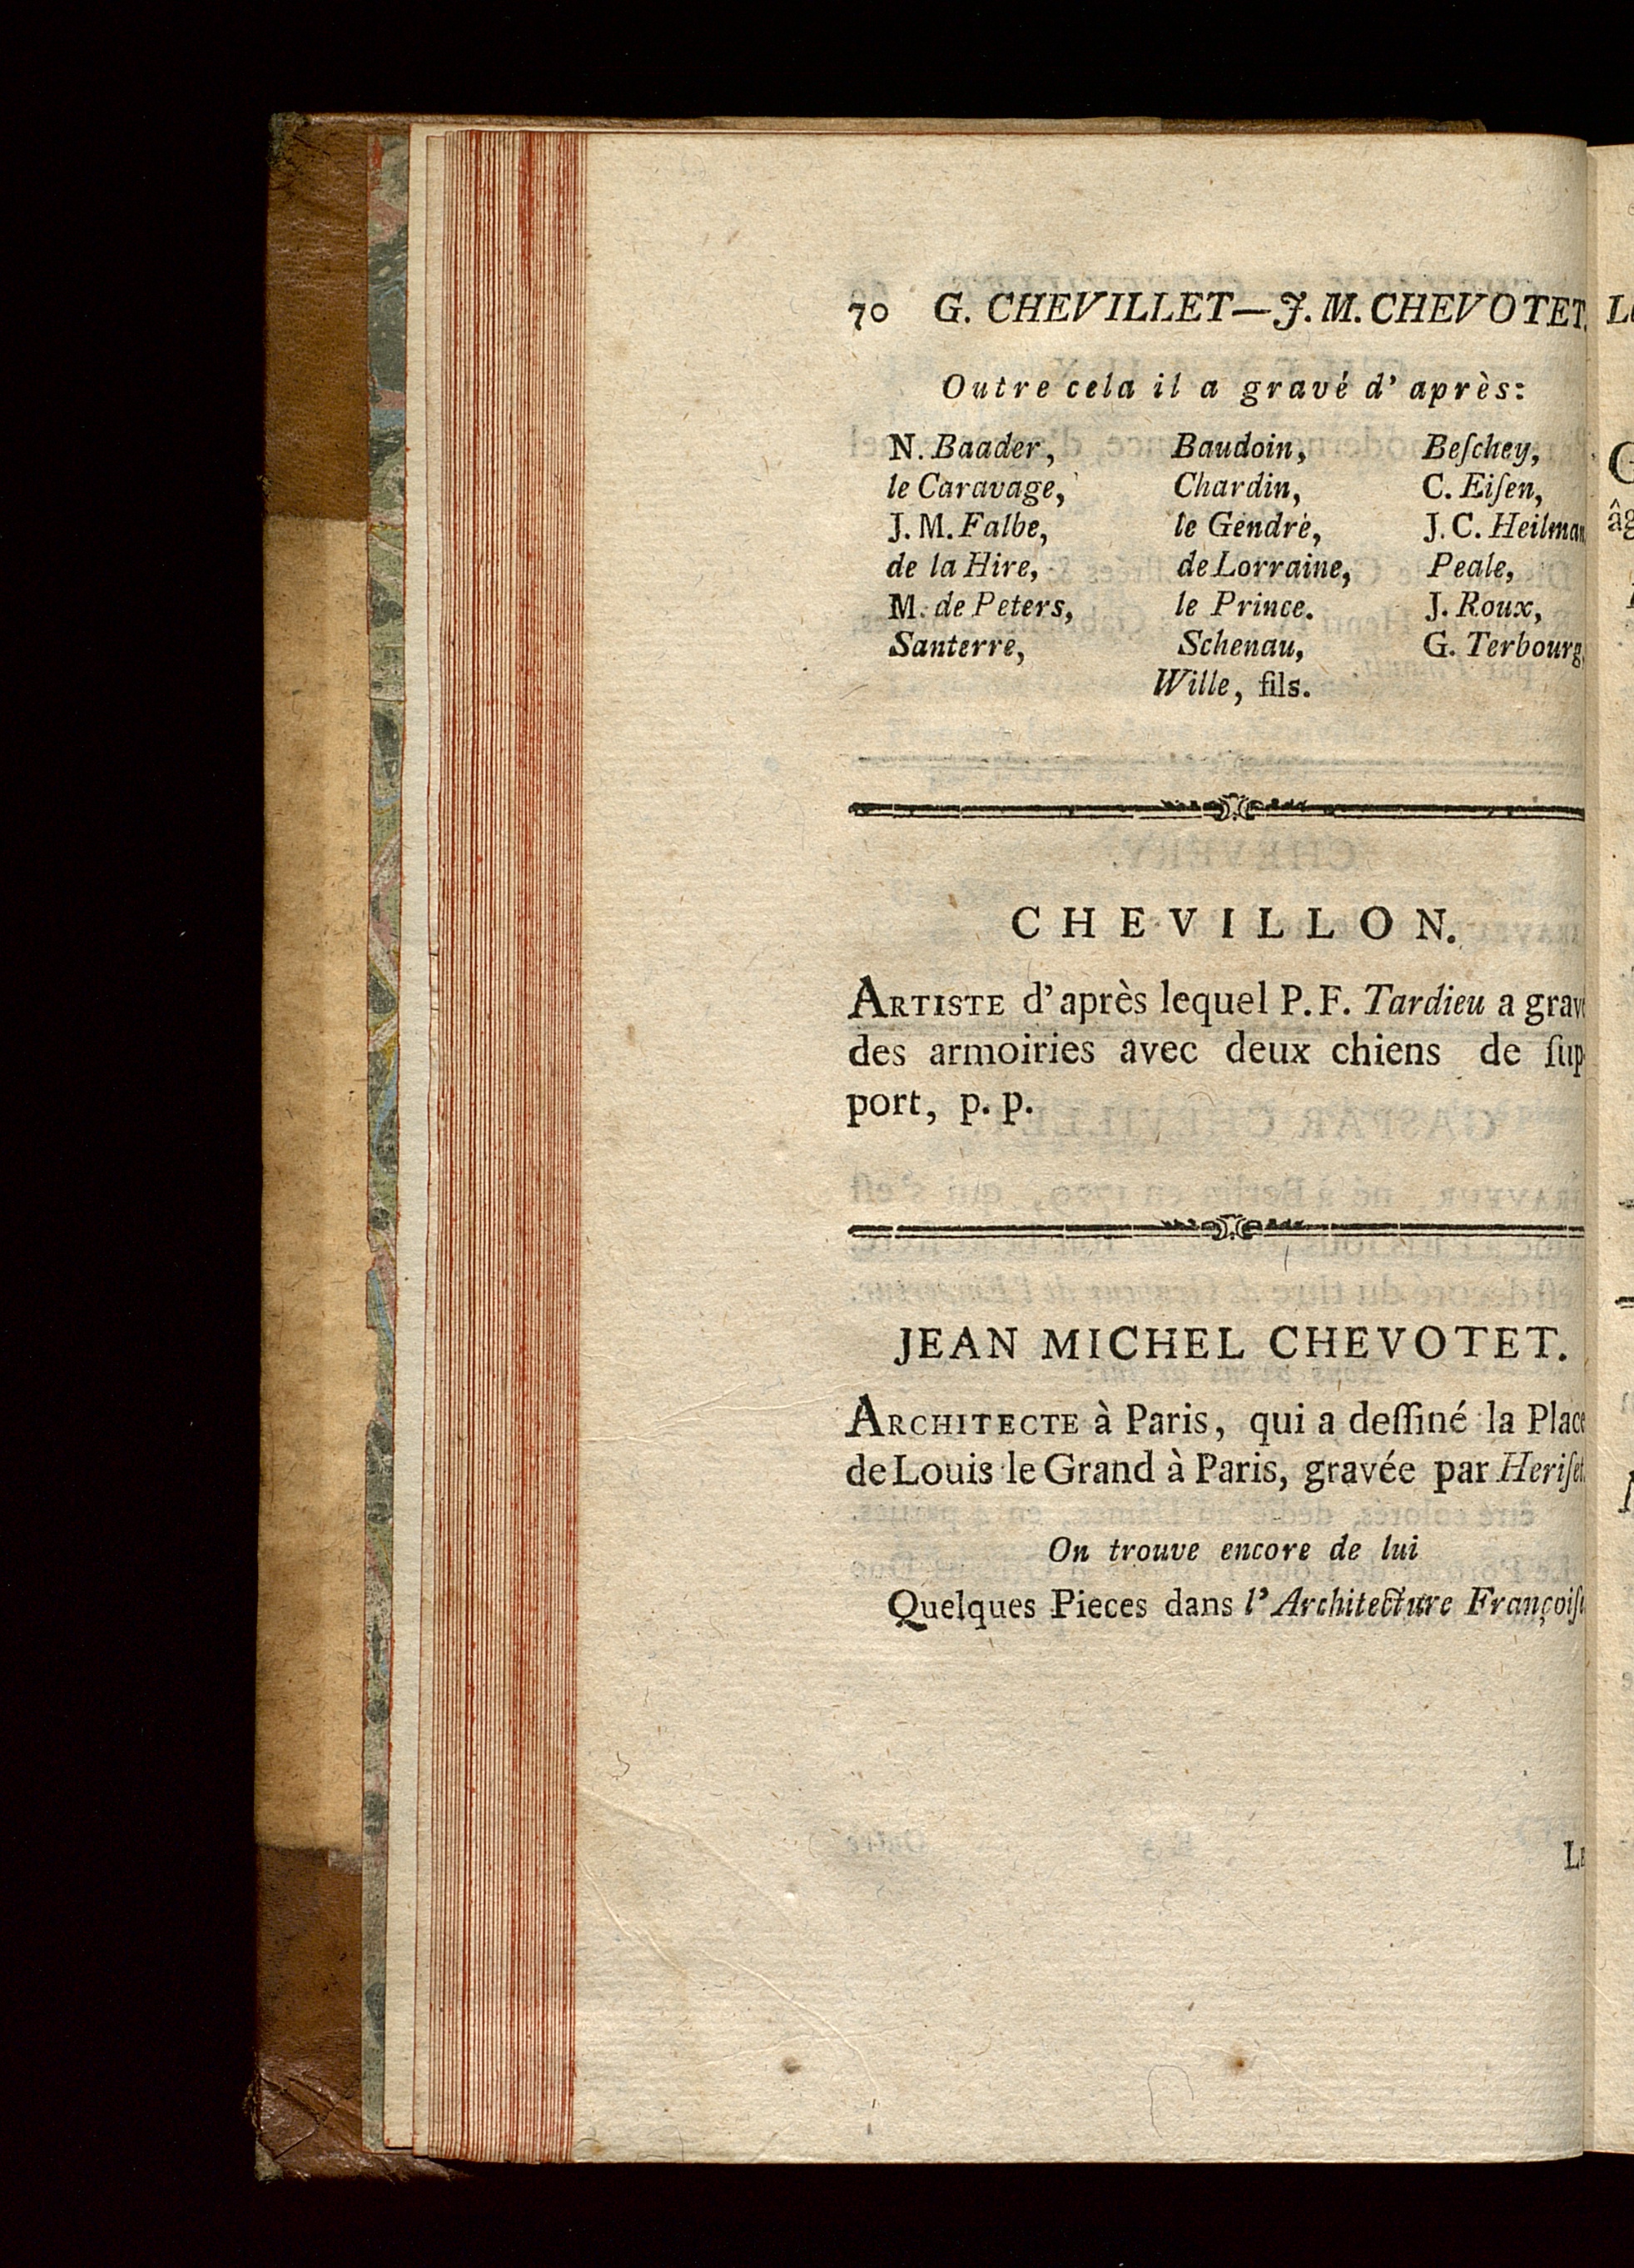 70 G. CHEVILLET—J. M. CHEVOTET.
Outre cela il a gravé d' après:
N. Baader, Baudoin, Beſchey,
le Caravage, Chardin, C. Eiſen,
J. M. Falbe, le Gendre, J. C. Heilman
de la Hire, de Lorraine, Peale,
M. de Peters, le Prince. J. Roux,
Santerre, Schenau, G. Terbourg,
Wille, fils.
CHEVILLON.
ARTISTE d'après lequel P. F. Tardieu a gravé
des armoiries avec deux chiens de ſup-
port, p. p.
JEAN MICHEL CHEVOTET.
ARCHITECTE à Paris, qui a deſſiné la Place
de Louis le Grand à Paris, gravée par Heriſet.
On trouve encore de lui
Quelques Pieces dans l'Architecture Françoiſe
LE